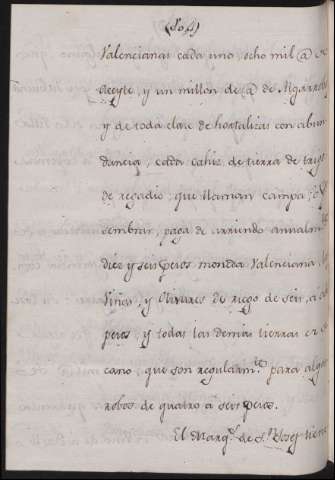 Valencianas cada uno, ocho mil @ de
Aceyte, y un millon de @ de Algarrov
y de toda clase de hortalizas con abun
dancia, cada cahiz de tierra de trigo
de regadio, que llaman campa, o
sembrar, paga de arriendo anualm
diez y seis pesos moneda Valenciana, l
Viñas, y Olivares de riego de seis, a o
pesos, y todas las demas tierras en se
cano, que son regularm.te para algar
robos de quatro a seis pesos.
El Marq.s de S.n Josef tiene